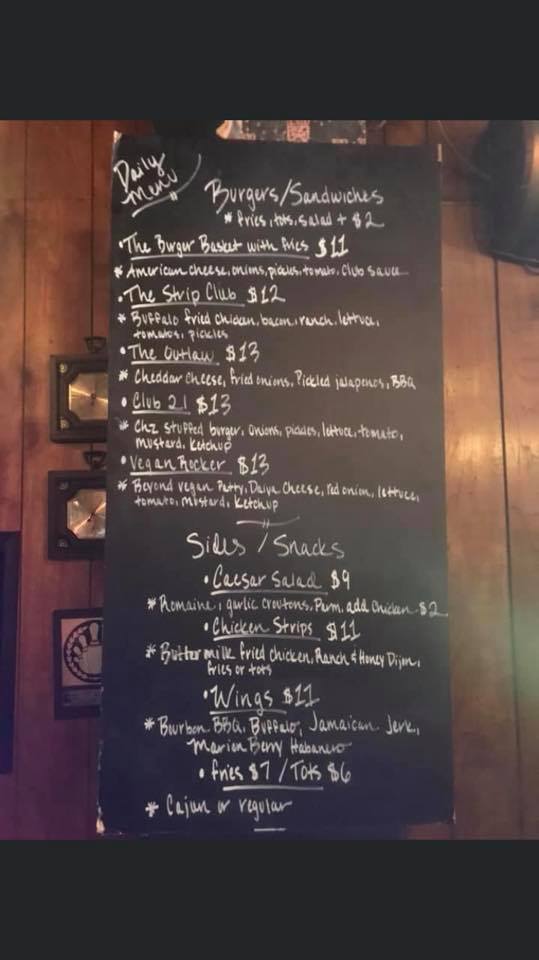 Daily
Menu
Burgers/Sandwiches
* fries, tots, salad + $2
• The Burger Basket with fries $11
* American cheese, onions, pickles, tomato, Club sauce
• The Strip Club $12
* Buffalo fried chicken, bacon, ranch, lettuce,
tomatos, pickles
• The Outlaw $13
* Cheddar Cheese, fried onions, Pickled jalapenos, BBQ
• Club 21 $13
* Chz stuffed burger, onions, pickles, lettuce, tomato,
mustard, ketchup
• Vegan Rocker $13
* Beyond vegan Patty, Daiya Cheese, red onion, lettuce,
tomato, mustard, ketchup
Sides / Snacks
• Caesar Salad $9
* Romaine, garlic croutons, Parm. add Chicken $2
• Chicken Strips $11
* Butter milk fried chicken, Ranch & Honey Dijon,
fries or tots
• Wings $11
* Bourbon BBQ, Buffalo, Jamaican Jerk,
Marion Berry Habanero
• fries $7 / Tots $6
* Cajun or regular